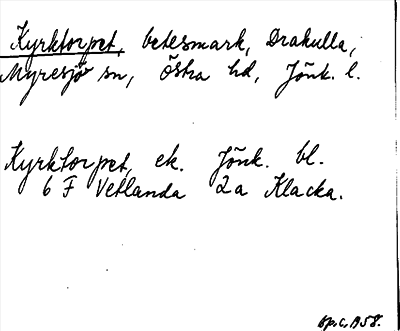 Kyrktorpet, betesmark, Drakulla,
Myresjö sn, Östra hd, Jönk. l.
Kyrktorpet, ek. Jönk. bl.
6 F Vetlanda 2a Klacka.
Op.c. 1958.